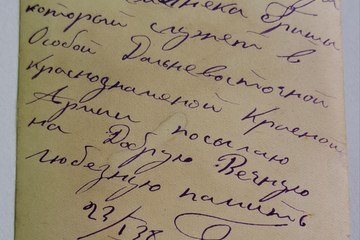 Гриши
который служет в
Особой Дальневосточной
Краснознаменой Красной
Армии посылаю
на Добрую Вечную
любезную память
23/I 38